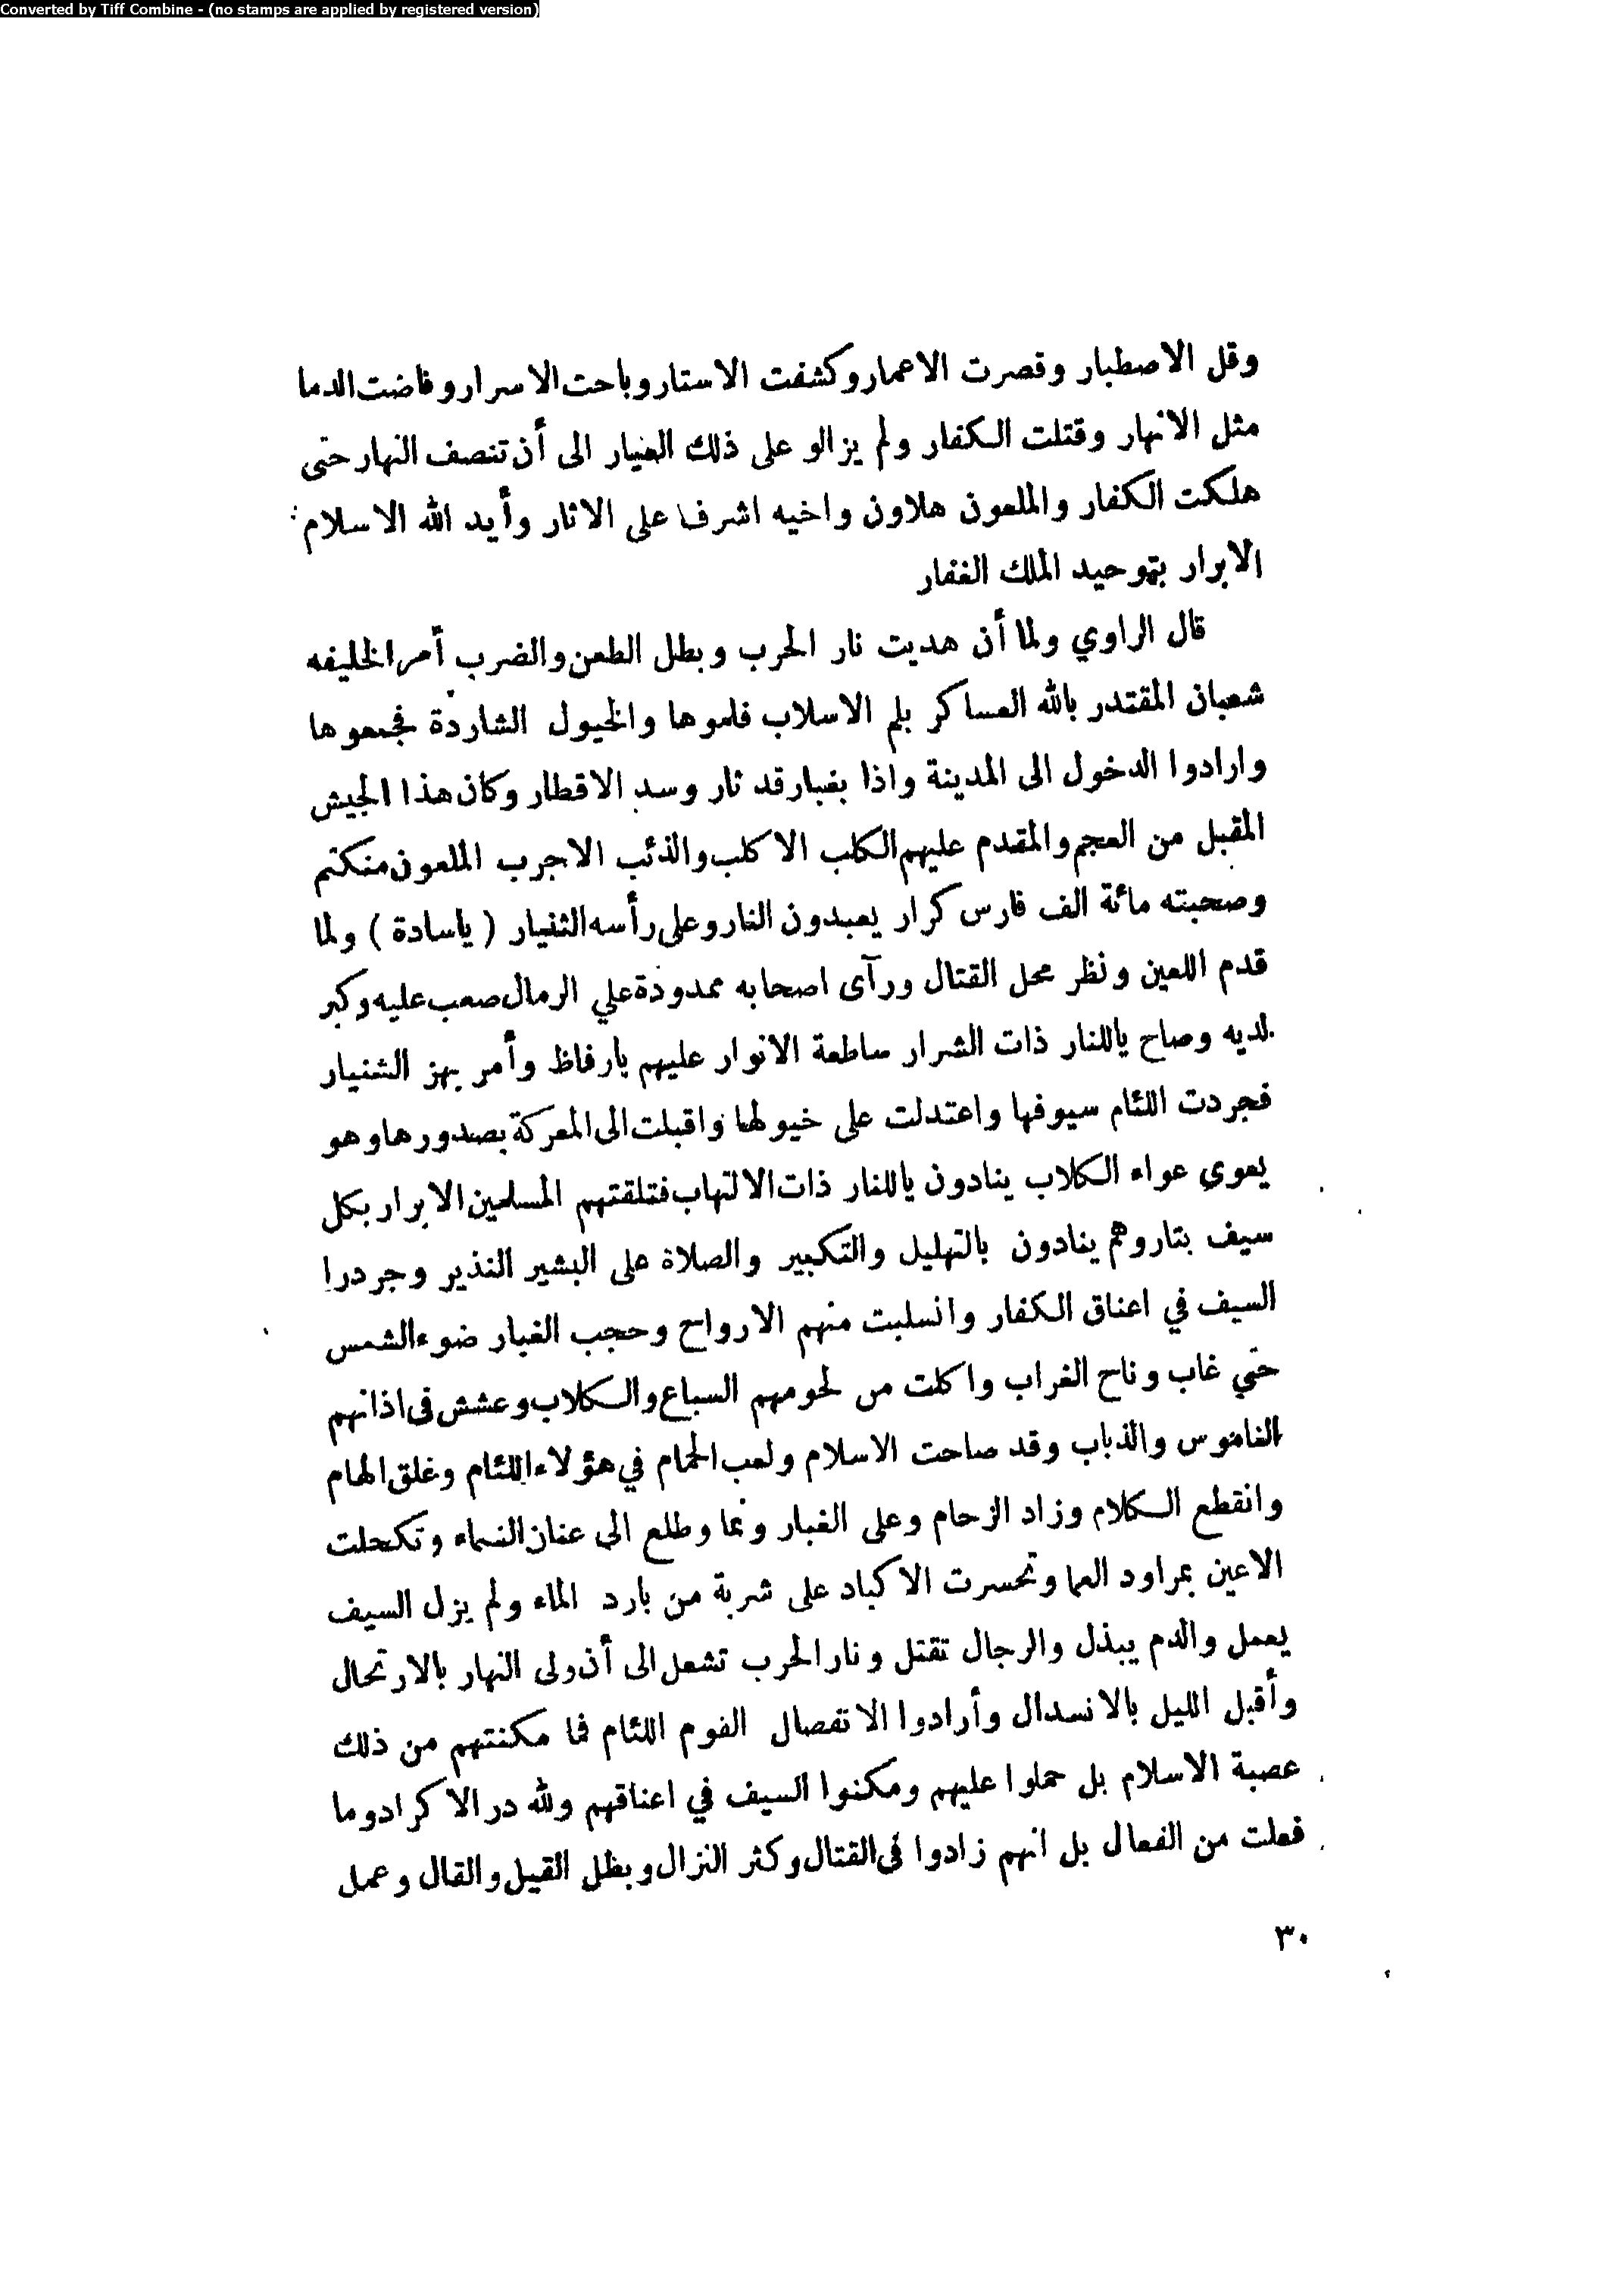 Converted by Tiff Combine - (no stamps are applied by registered version)
وقل الاصطبار وقصرت الاعمار وكشفت الاستار وباحت الاسرار وفاضت الدما
مثل الانهار وقتلت الكفار ولم يزالو على ذلك العيار الى أن تنصف النهار حتى
هلكت الكفار والملعون هلاون واخيه اشرفا على الاثار وأيد الله الاسلام
الابرار بتوحيد الملك الغفار
قال الراوي ولما أن هديت نار الحرب وبطل الطعن والضرب أمر الخليفه
شعبان المقتدر بالله العساكر بلم الاسلاب فلموها والخيول الشاردة فجمعوها
وارادوا الدخول الى المدينة واذا بغبار قد ثار وسد الاقطار وكان هذا الجيش
المقبل من العجم والمقدم عليهم الكلب الاكلب والذئب الاجرب الملعون منكتم
وصحبته مائة الف فارس كرار يعبدون النار وعلى رأسه الثنيار ( ياسادة ) ولما
قدم اللعين ونظر محل القتال ورآى اصحابه ممدودة علي الرمال صعب عليه وكبر
لديه وصاح ياللنار ذات الشرار ساطعة الانوار عليهم يارفاظ وأمر بهز الشنيار
فجردت اللئام سيوفها واعتدلت على خيولها واقبلت الى المعركة بصدورها وهو
يعوي عواء الكلاب ينادون ياللنار ذات الالتهاب فتلقتهم المسلمين الابرار بكل
سيف بتار وهم ينادون بالتهليل والتكبير والصلاة على البشير النذير وجردرا
السيف في اعناق الكفار وانسلبت منهم الارواح وحجب الغبار ضوء الشمس
حتي غاب وناح الغراب واكلت من لحومهم السباع والكلاب وعشش فى اذانهم
الناموس والذباب وقد صاحت الاسلام ولعب الحمام في هؤلاء اللئام وغلق الهام
وانقطع الكلام وزاد الزحام وعلى الغبار ونما وطلع الى عنان السماء وتكحلت
الاعين بمراود العما وتحسرت الاكباد على شربة من بارد الماء ولم يزل السيف
يعمل والدم يبذل والرجال تقتل ونار الحرب تشعل الى أن ولى النهار بالارتحال
وأقبل الليل بالانسدال وأرادوا الانفصال القوم اللئام فما مكنتهم من ذلك
عصبة الاسلام بل حملوا عليهم ومكنوا السيف في اعناقهم ولله در الاكراد وما
فعلت من الفعال بل انهم زادوا فى القتال وكثر النزال وبطل القيل والقال وعمل
٣٠